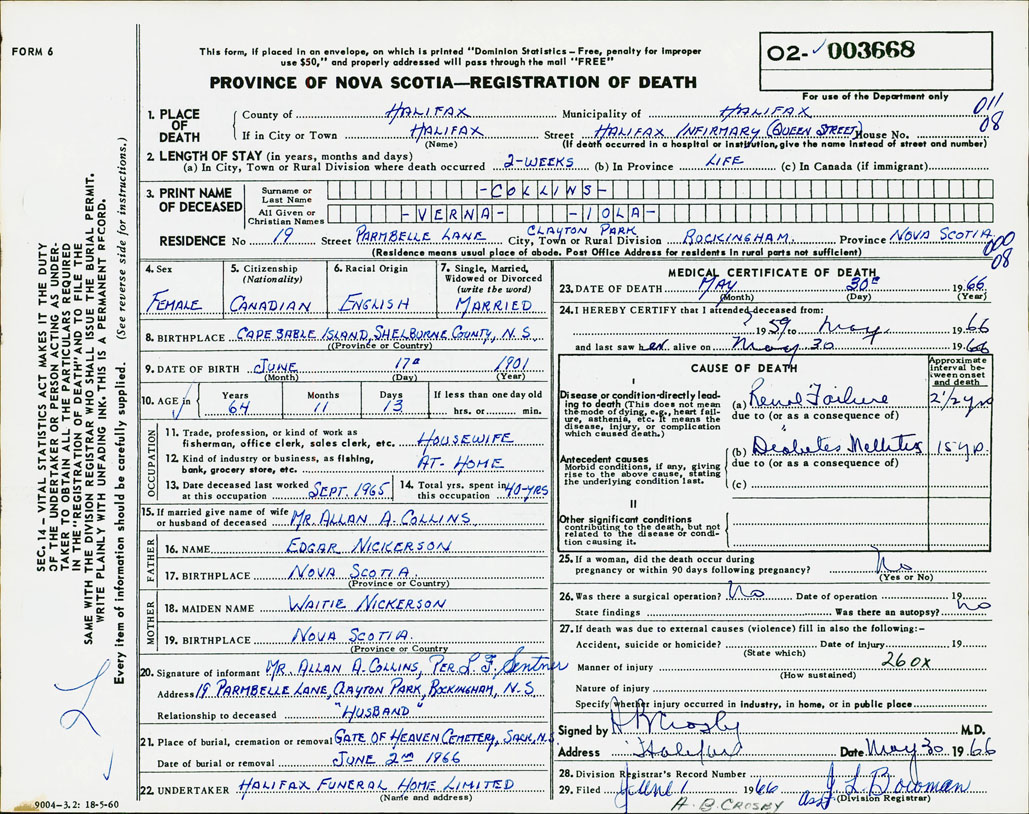 FORM 6
This form, if placed in an envelope, on which is printed "Dominion Statistics – Free, penalty for improper
use $50," and properly addressed will pass through the mail "FREE"
PROVINCE OF NOVA SCOTIA—REGISTRATION OF DEATH
02- 003668
For use of the Department only
011
08
1. PLACE OF DEATH
County of HALIFAX Municipality of HALIFAX
If in City or Town HALIFAX Street HALIFAX INFIRMARY (QUEEN STREET) House No.
(Name) (If death occurred in a hospital or institution, give the name instead of street and number)
2. LENGTH OF STAY (in years, months and days)
(a) In City, Town or Rural Division where death occurred 2-WEEKS (b) In Province LIFE (c) In Canada (if immigrant)
3. PRINT NAME OF DECEASED
Surname or Last Name -COLLINS-
All Given or Christian Names -VERNA- -IOLA-
RESIDENCE No 19 Street PARMBELLE LANE City, Town or Rural Division CLAYTON PARK ROCKINGHAM Province NOVA SCOTIA
(Residence means usual place of abode. Post Office Address for residents in rural parts not sufficient)
000
08
4. Sex FEMALE
5. Citizenship (Nationality) CANADIAN
6. Racial Origin ENGLISH
7. Single, Married, Widowed or Divorced (write the word) MARRIED
8. BIRTHPLACE CAPE SABLE ISLAND, SHELBURNE COUNTY, N.S.
(Province or Country)
9. DATE OF BIRTH JUNE 17th 1901
(Month) (Day) (Year)
10. AGE in Years 64 Months 11 Days 13 If less than one day old hrs. or min.
OCCUPATION
11. Trade, profession, or kind of work as
fisherman, office clerk, sales clerk, etc. HOUSEWIFE
12. Kind of industry or business, as fishing,
bank, grocery store, etc. AT-HOME
13. Date deceased last worked at this occupation SEPT. 1965
14. Total yrs. spent in this occupation 40-YRS
15. If married give name of wife
or husband of deceased MR. ALLAN A. COLLINS
FATHER
16. NAME EDGAR NICKERSON
17. BIRTHPLACE NOVA SCOTIA
(Province or Country)
MOTHER
18. MAIDEN NAME WAITIE NICKERSON
19. BIRTHPLACE NOVA SCOTIA
(Province or Country
20. Signature of informant MR. ALLAN A. COLLINS, PER L. F. Sentner
Address 19 PARMBELLE LANE, CLAYTON PARK, ROCKINGHAM, N.S
Relationship to deceased "HUSBAND"
21. Place of burial, cremation or removal GATE OF HEAVEN CEMETERY, SACK, N.S.
Date of burial or removal JUNE 2nd 1966
22. UNDERTAKER HALIFAX FUNERAL HOME LIMITED
(Name and address)
MEDICAL CERTIFICATE OF DEATH
23. DATE OF DEATH MAY 30th 1966
(Month) (Day) (Year)
24. I HEREBY CERTIFY that I attended deceased from:
1959 to May 1966
and last saw her alive on May 30 1966
CAUSE OF DEATH
Approximate interval between onset and death
I
Disease or condition directly leading to death (This does not mean the mode of dying, e.g., heart failure, asthenia, etc. It means the disease, injury, or complication which caused death.)
(a) Renal Failure 2 1/2 yrs
due to (or as a consequence of)
Antecedent causes
Morbid conditions, if any, giving rise to the above cause, stating the underlying condition last.
(b) Diabetes Mellitis 15 yrs.
due to (or as a consequence of)
(c)
II
Other significant conditions
contributing to the death, but not related to the disease or condition causing it.
25. If a woman, did the death occur during
pregnancy or within 90 days following pregnancy? No
(Yes or No)
26. Was there a surgical operation? No Date of operation 19
State findings Was there an autopsy? no
27. If death was due to external causes (violence) fill in also the following:–
Accident, suicide or homicide? Date of injury 19
(State which)
Manner of injury 260X
(How sustained)
Nature of injury
Specify whether injury occurred in industry, in home, or in public place
Signed by H B Crosby M.D.
Address Halifax Date May 30 1966
28. Division Registrar's Record Number
29. Filed June 1 1966 J L Bowman
A. B. CROSBY asst (Division Registrar)
SEC. 14 – VITAL STATISTICS ACT MAKES IT THE DUTY
OF THE UNDERTAKER OR PERSON ACTING AS UNDER-
TAKER TO OBTAIN ALL THE PARTICULARS REQUIRED
IN THE "REGISTRATION OF DEATH" AND TO FILE THE
SAME WITH THE DIVISION REGISTRAR WHO SHALL ISSUE THE BURIAL PERMIT.
WRITE PLAINLY WITH UNFADING INK. THIS IS A PERMANENT RECORD.
Every item of information should be carefully supplied. (See reverse side for instructions.)
9004-3.2: 18-5-60